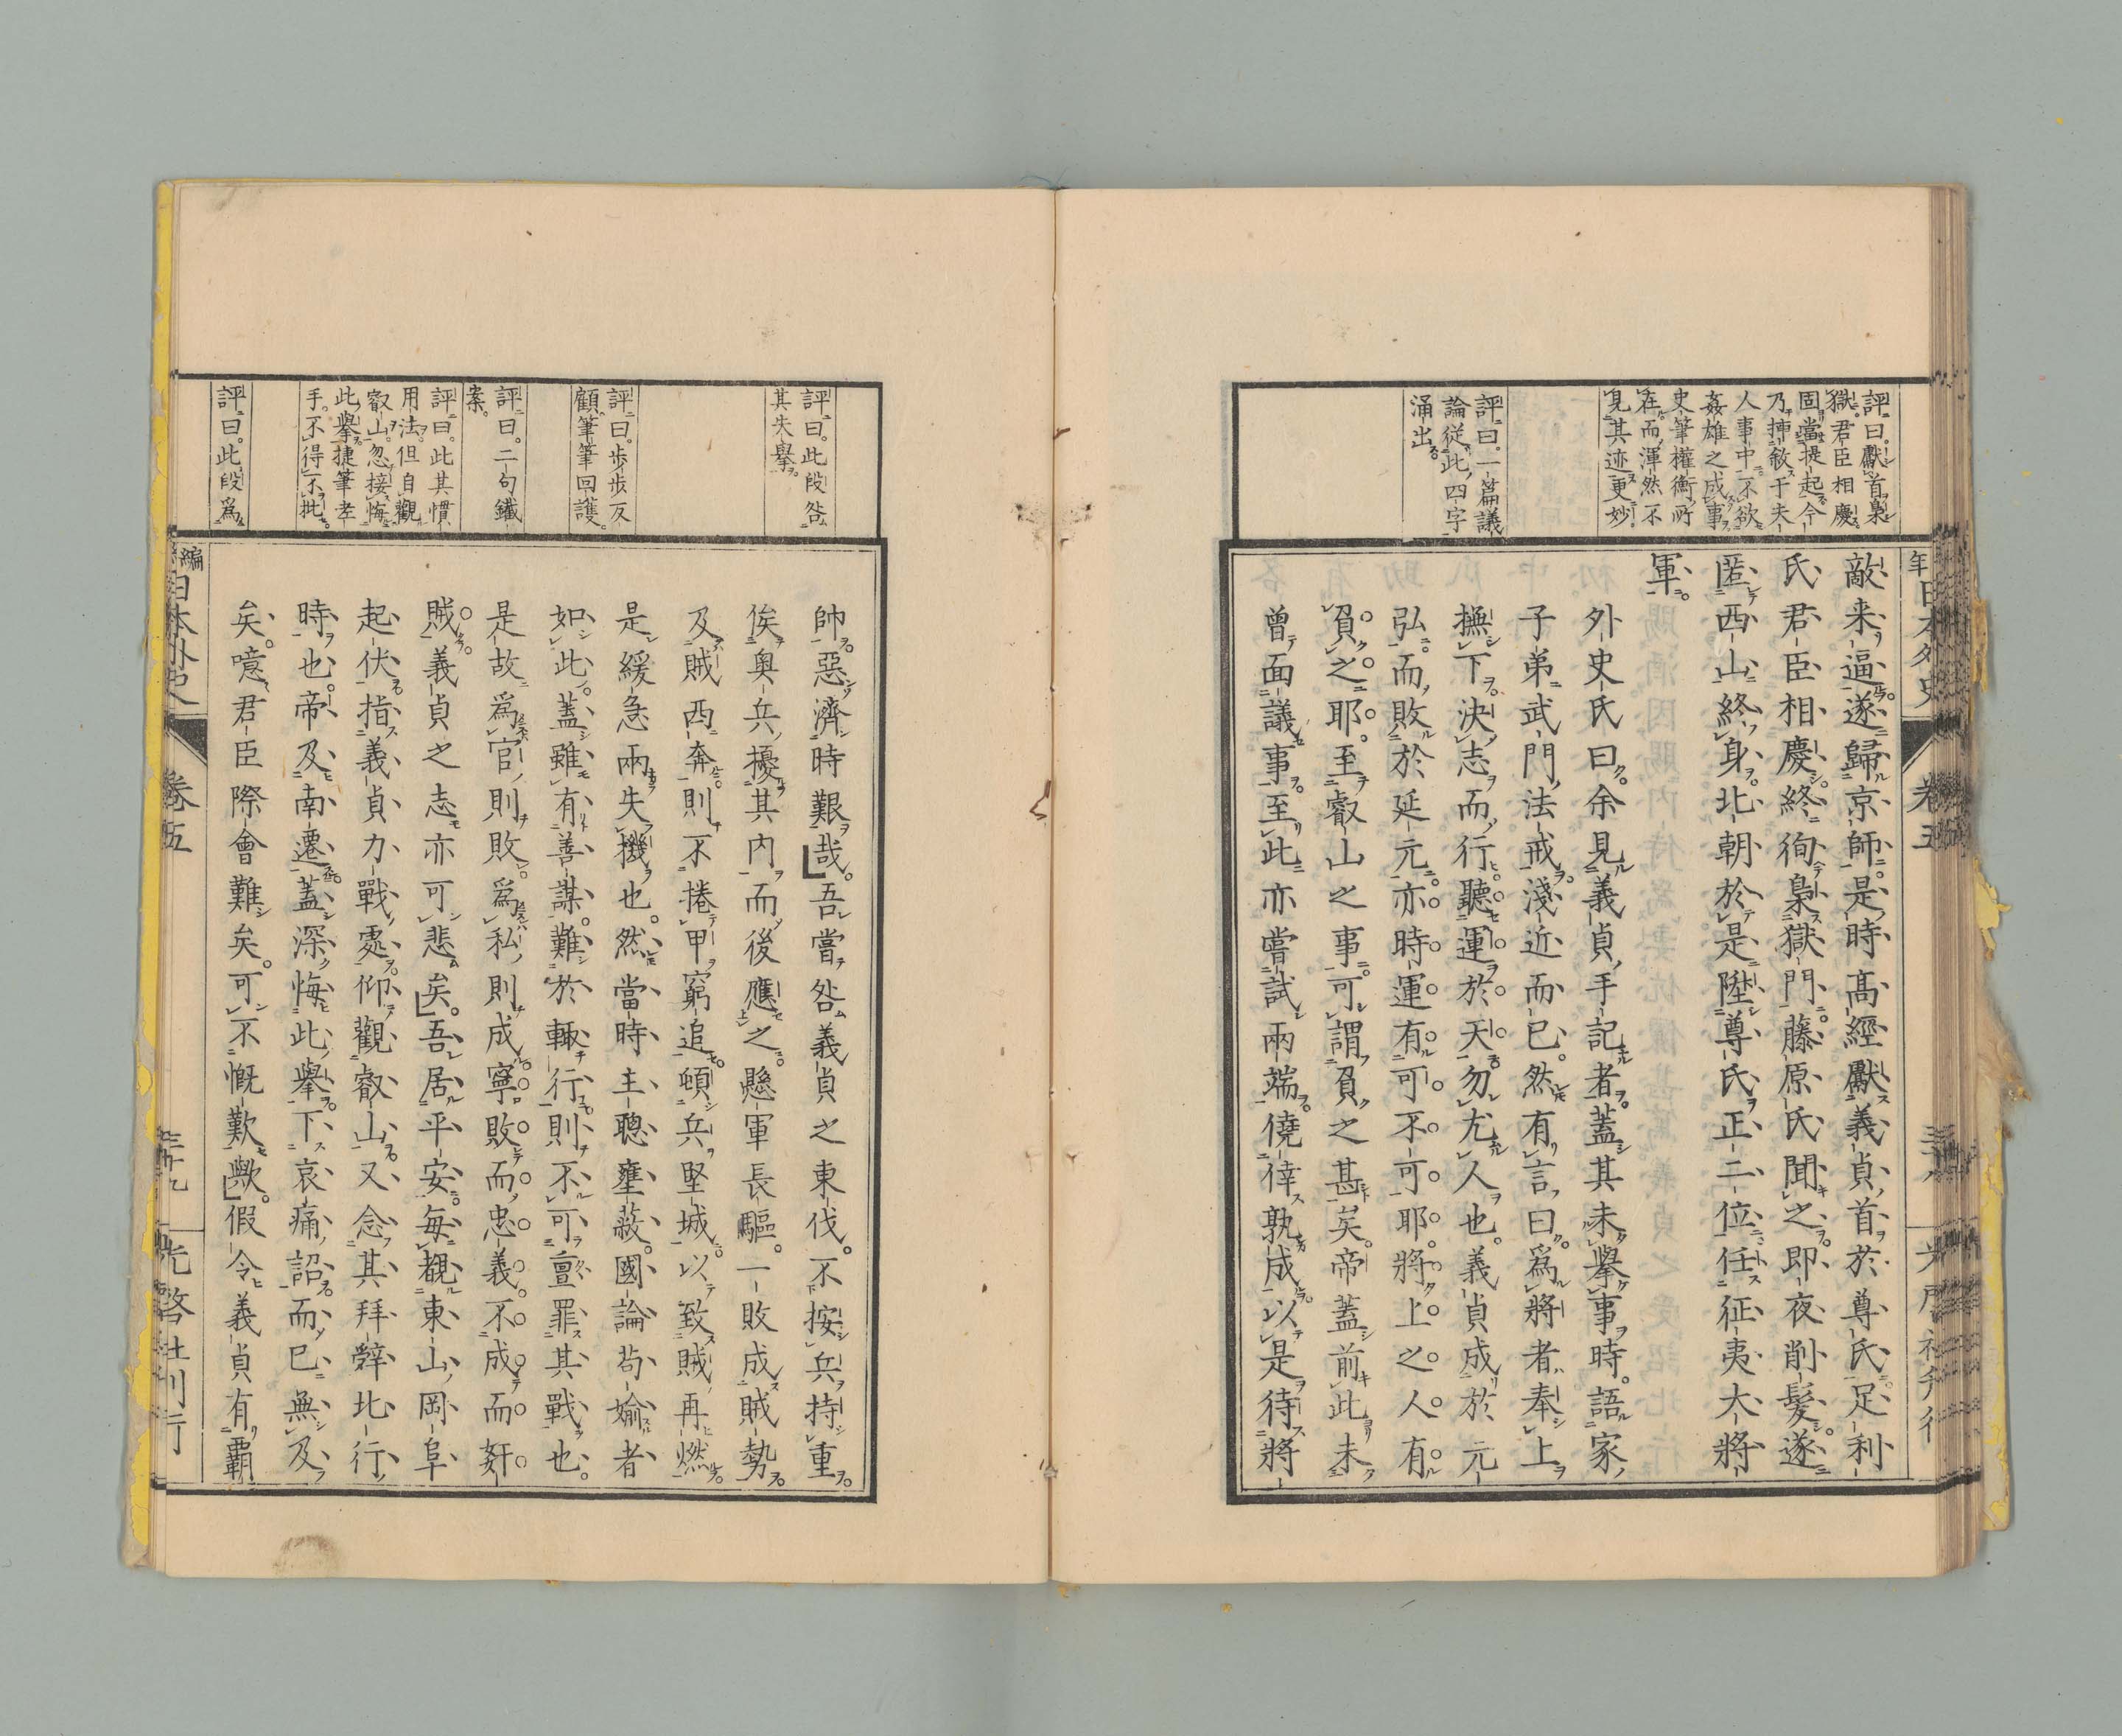 評曰。獻首梟
獄。君臣相慶
固當提起。今
乃挿敘于夫
人事中。不欲
姦雄之成事
史筆權衡所
在。而渾然不
見其迹更妙
評曰。一篇議
論從此四字
涌出。
敵来逼遂歸京師。是時高經獻義貞首於尊氏。足利
氏君臣相慶。終徇梟獄門。藤原氏聞之。即夜削髮。遂
匿西山終身。北朝於是陞尊氏正二位任征夷大將
軍。
外史氏曰。余見義貞手記者。蓋其未擧事時。語家
子弟武門法戒。淺近而已。然有言曰。爲將者奉上
撫下。決志而行。聽運於天。勿尤人也。義貞成於元
弘。而敗於延元。亦時運有可不可耶。將上之人有
負之耶。至叡山之事。可謂負之甚矣。帝蓋前此未
曾面議事。至此亦嘗試兩端。僥倖孰成。以是待將
卷五
評曰。此段咎
其失擧。
評曰。步步反
顧。筆筆回護。
評曰。二句鐵
案。
評曰。此其慣
用法。但自觀
叡山。忽接悔
此擧。捷筆老
手。不得不批。
評曰。此段爲
帥。惡濟時艱哉。吾嘗咎義貞之東伐。不按兵持重。
俟奥兵擾其内。而後應之。懸軍長驅。一敗成賊勢。
及賊西奔。則不捲甲窮追。頓兵堅城。以致賊再燃。
是緩急兩失機也。然當時主聰壅蔽。國論苟媮者
如此。蓋雖有善謀。難於輙行。則不可亶罪其戰也。
是故爲官則敗。爲私則成。寧敗而忠義。不成而姧
賊。義貞之志亦可悲矣。吾居平安。毎觀東山岡阜
起伏。指義貞力戰處。仰觀叡山。又念其拜辭北行
時也。帝及南遷。蓋深悔此擧。下哀痛詔。而已無及
矣。噫君臣際會難矣。可不慨歎歟。假令義貞有覇
編
日本外史
卷五
三十九
光啓社刊行